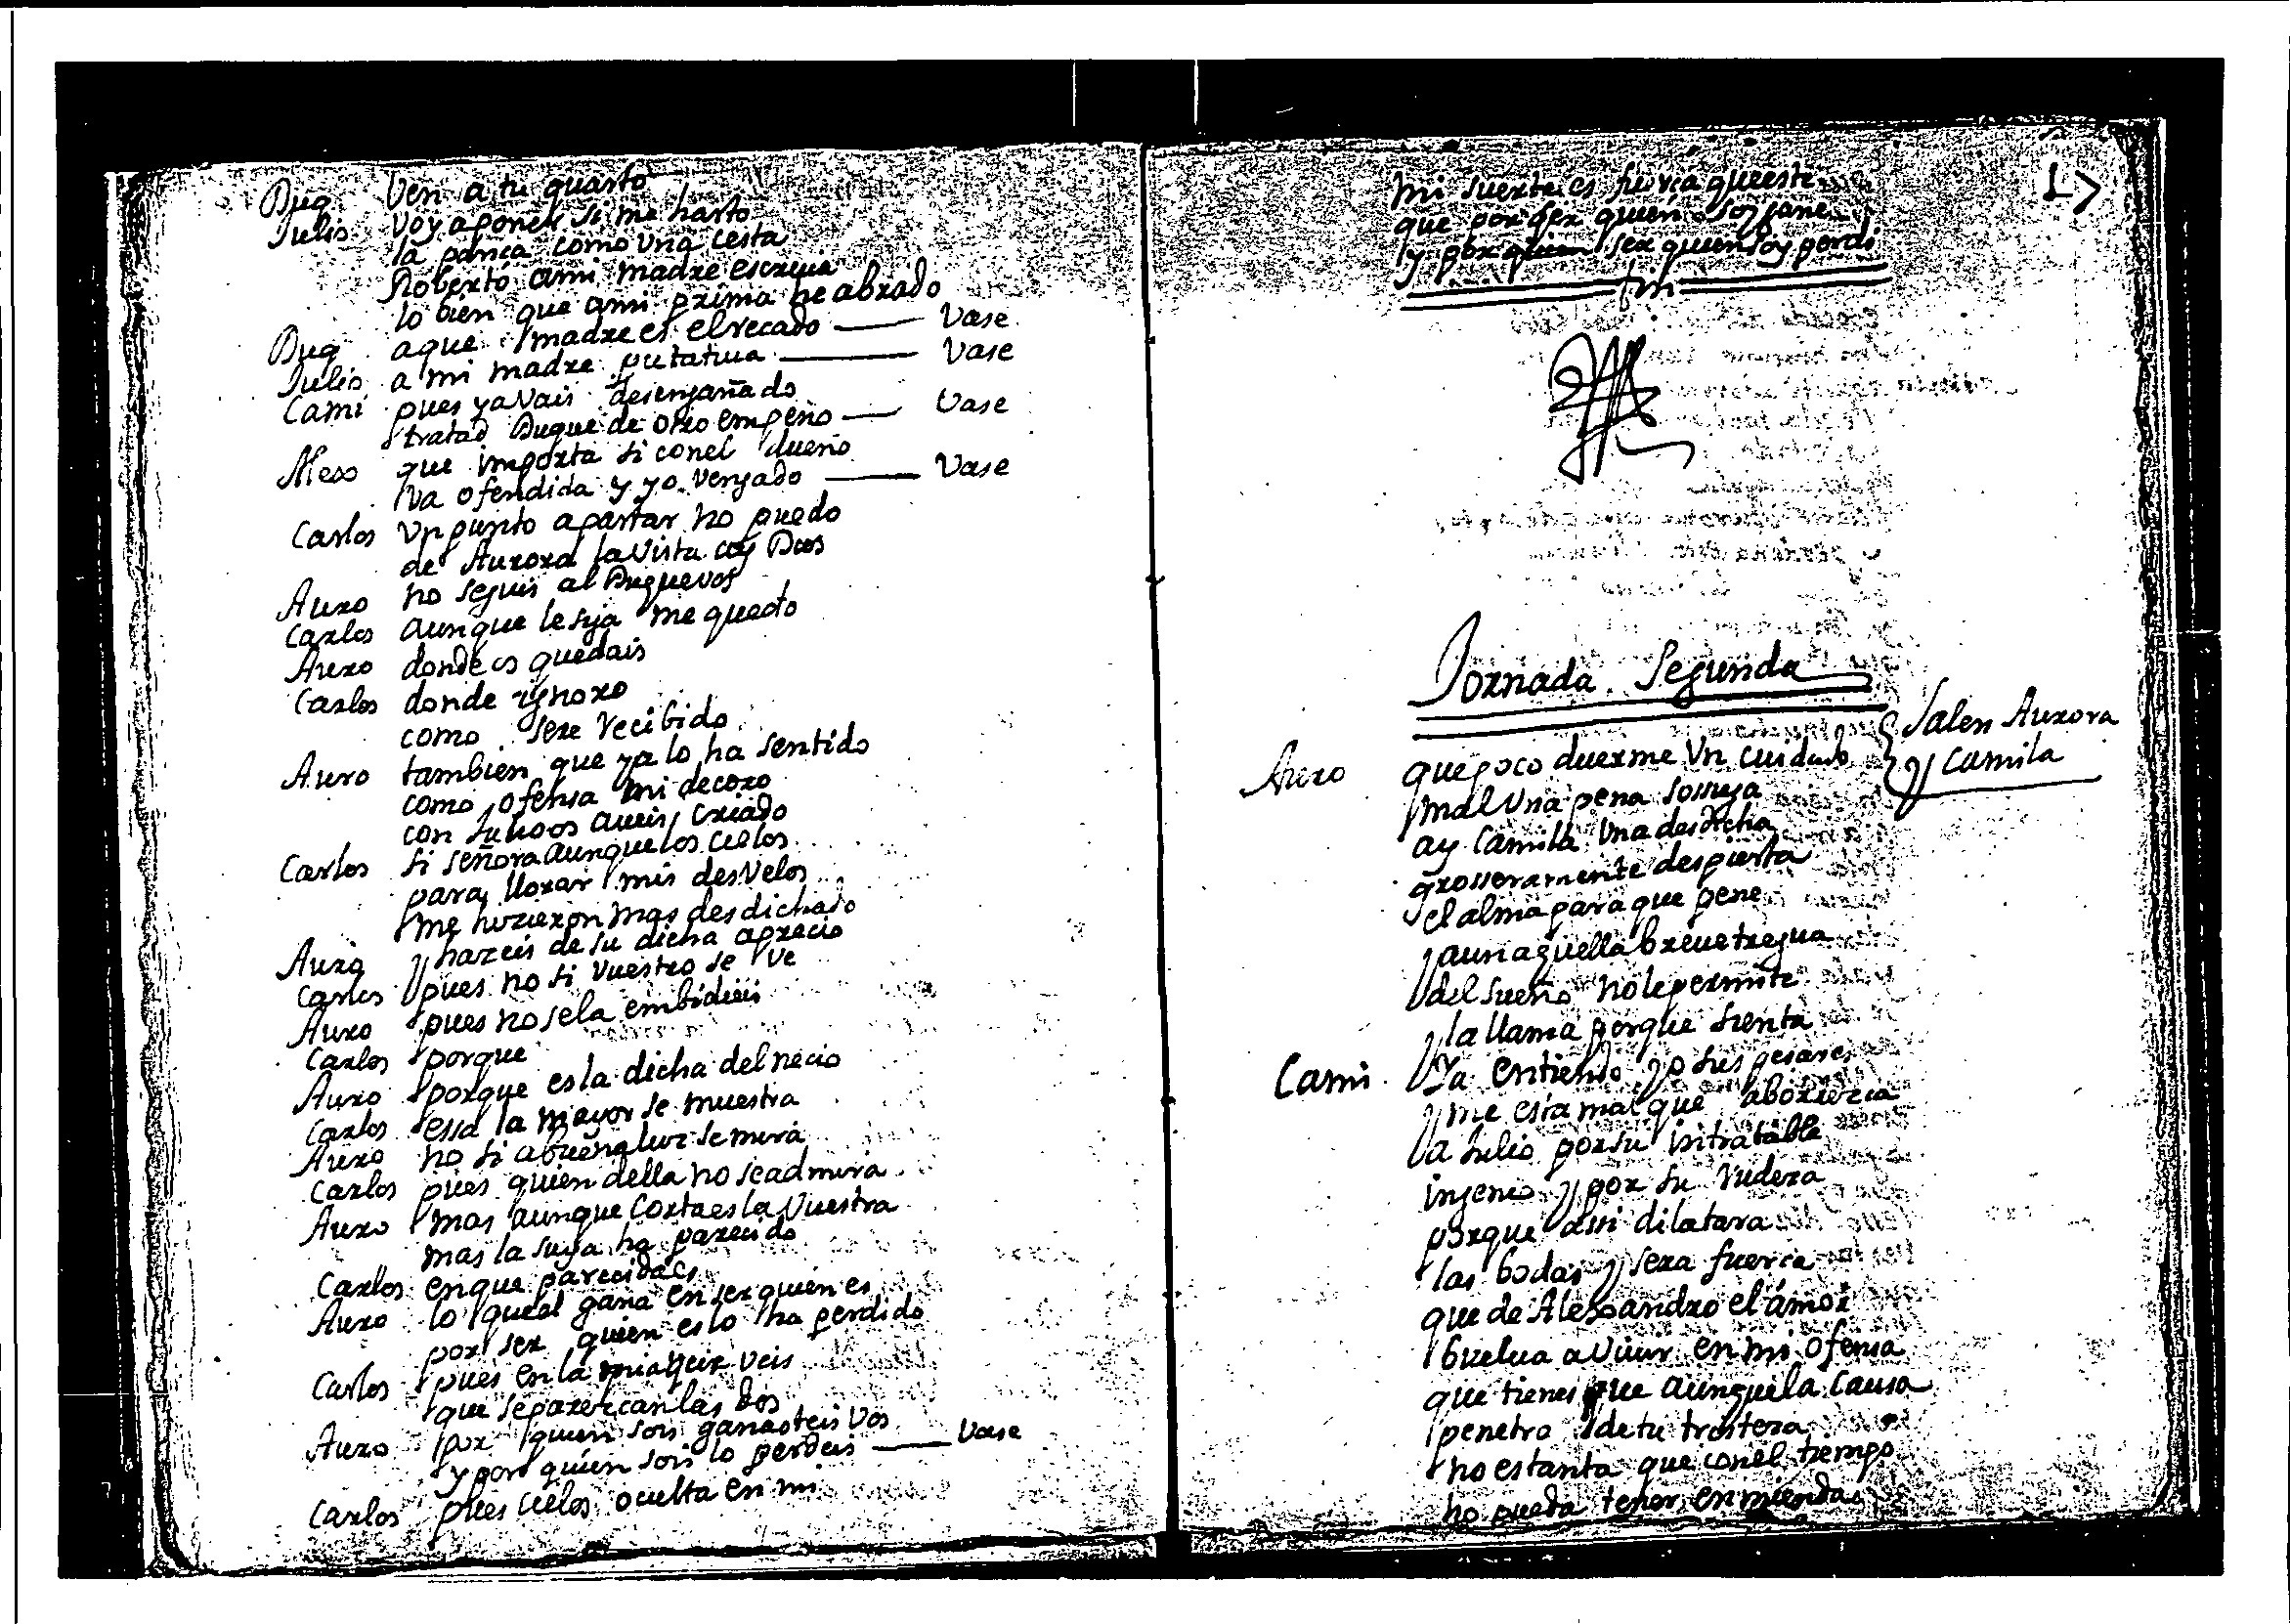 Duq Ven a tu quarto
Julio Voy a poner si me harto
la pança como una cesta
Roberto a mi madre escriuia
lo bien que a mi prima he abrado
Duq a que madre es el recado — Vase
Julio a mi madre putatiua — Vase
Cami pues ya vais desengañado
tratad Duque de otro empeño — Vase
Alexo que importa si con el dueño
va ofendida y yo vengado — Vase
Carlos Un punto apartar no puedo
de Aurora la vista ay Dios
Auro no seguis al Duque vos
Carlos aunque le siga me quedo
Auro donde os quedais
Carlos donde ignoro
como sere recibido
Auro tambien que ya lo ha sentido
como ofensa mi decoro
con Julio os aueis criado
Carlos si señora aunque los cielos
para llorar mis desvelos
me hizieron mas desdichado
Auro y hazeis de su dicha aprecio
Carlos pues no si vuestro se ve
Auro pues no se la embidieis
Carlos porque
Auro porque es la dicha del necio
Carlos essa la mayor se muestra
Auro no si a buena luz se mira
Carlos pues quien della no se admira
Auro mas aunque corta es la vuestra
mas la suya ha parecido
Carlos en que parecida es
Auro lo que el gana en ser quien es
por ser quien es lo ha perdido
Carlos pues en la mia veis
que se parezcan las dos
Auro por quien sois ganasteis vos
y por quien sois lo perdeis — Vase
Carlos pues cielos oculta en mi
17
mi suerte es fuerça que este
que por ser quien soy gane
y por ser quien soy perdi
fin
Jornada Segunda
Salen Aurora
y Camila
Auro que poco duerme un cuidado
mal una pena sosiega
ay Camila una desdicha
grosseramente despierta
el alma para que pene
y aun aquella breue tregua
del sueño no le permite
la llama porque sienta
Cami Ya entiendo yo tus pesares
y me esta mal que aborrezca
a Julio por su intratable
ingenio y por su rudeza
porque assi dilatara
las bodas y sera fuerça
que de Alexandro el amor
buelua a viuir en mi ofensa
que tienes que aunque la causa
penetro de tu tristeza
no es tanta que con el tiempo
no pueda tener enmienda